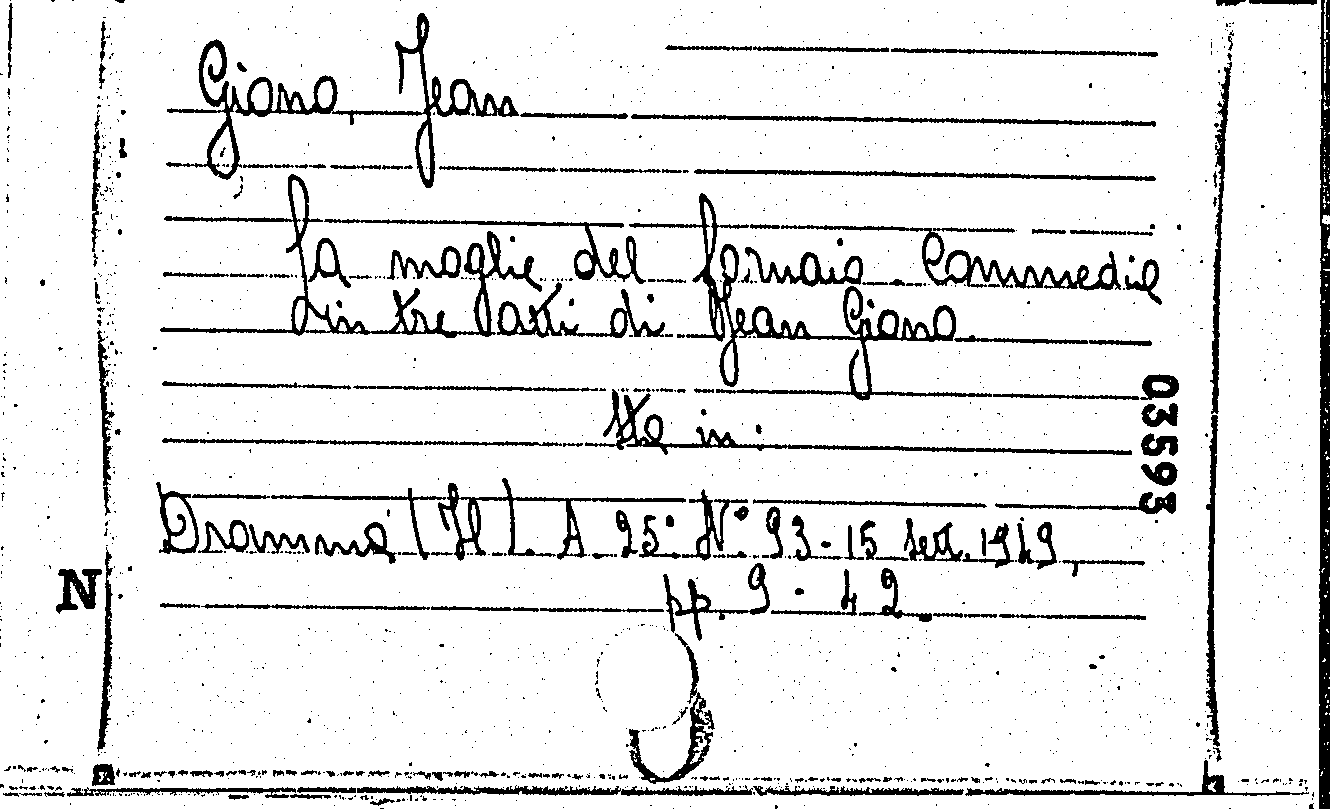 Giono, Jean
La moglie del fornaio. Commedia
in tre atti di Jean Giono.
Sta in:
Dramma (Il). A. 25° N° 93 - 15 Sett. 1949,
pp. 9 - 42.
03593
N